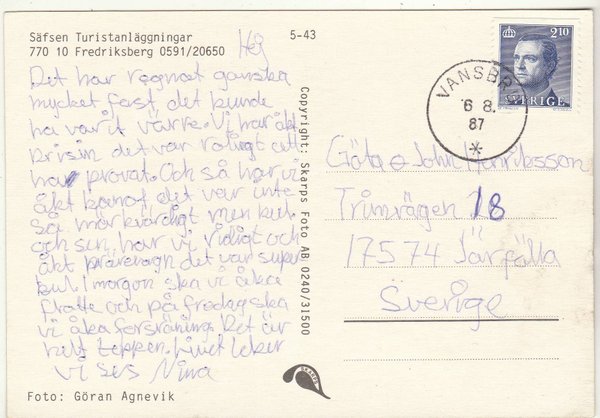 Säfsen Turistanläggningar
770 10 Fredriksberg 0591/20650
5-43
Hej
Det har regnat ganska
mycket fast det kunde
ha varit värre. Vi har åkt
det var roligt att
ha provat. Och så har vi
åkt kanot det var inte
så märkvärdigt men kul.
och sen har vi ridigt och
åkt prärivagn det var super
kul I morgon ska vi åka
flotte och på fredag ska
vi åka forsränning. Det är
helt toppen. Livet leker
vi ses Nina
Foto: Göran Agnevik
Copyright: Skarps Foto AB 0240/31500
SKARPS
2 10
SVERIGE
VANSBRO
6 8.
87
Göta o John Henriksson
Trimvägen 18
175 74 Järfälla
Sverige